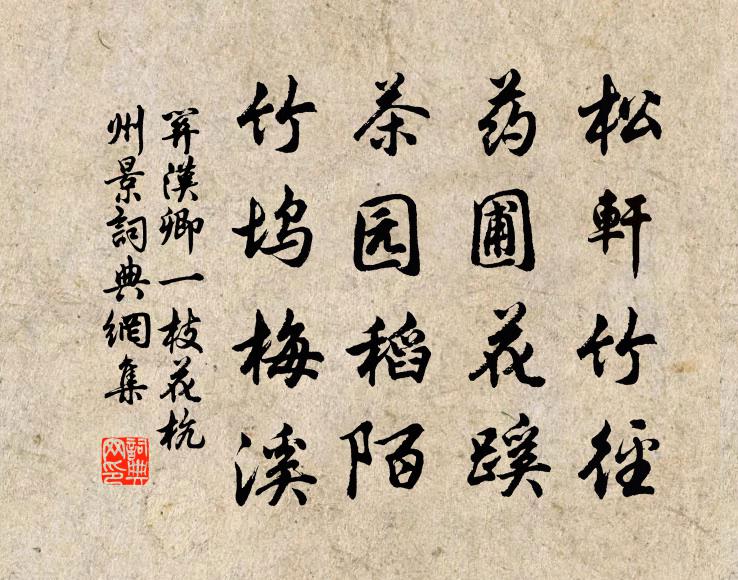 松軒竹徑
药圃花蹊
茶园稻陌
竹坞梅溪
關漢卿一枝花杭
州景詞典網集
詞典網印